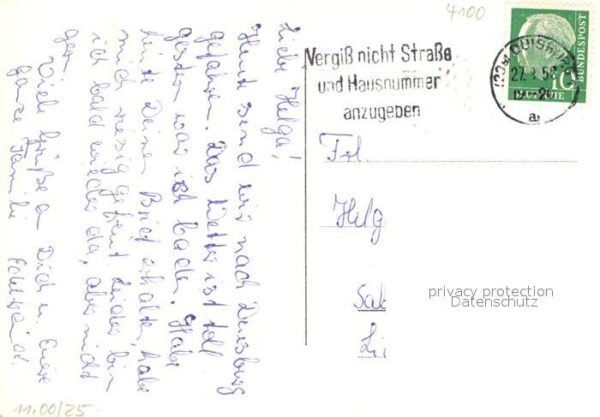 4100
Vergiß nicht Straße
und Hausnummer
anzugeben
DUISBURG
27.
a
BUNDESPOST
10
Liebe Helga!
Heute sind wir nach Duisburg
gefahren. Das Wetter ist toll
gestern war ich baden. Habe
heute Deinen Brief erhalten, habe
mich riesig gefreut. Leider bin
ich bald wieder da, aber nicht
gern.
Viele Grüße a Dich u. Eure
ganze Familie
Frl.
Helg
Sal
Li
privacy protection
Datenschutz
11.00/25